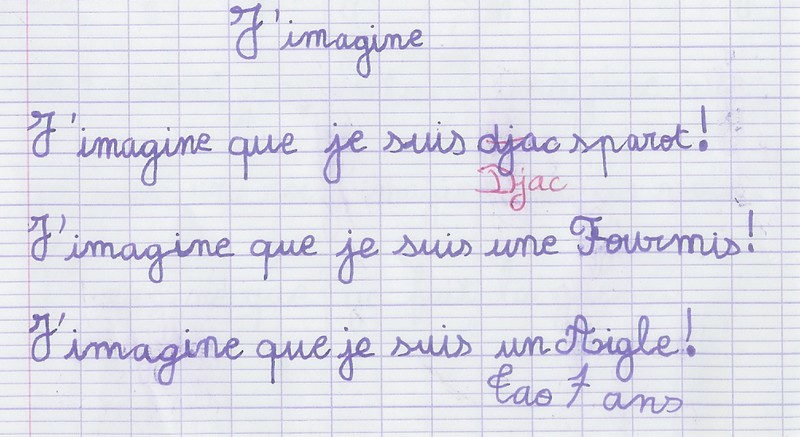 J'imagine
J'imagine que je suis djac sparot!
Djac
J'imagine que je suis une Fourmis!
J'imagine que je suis un Aigle!
Tao 7 ans